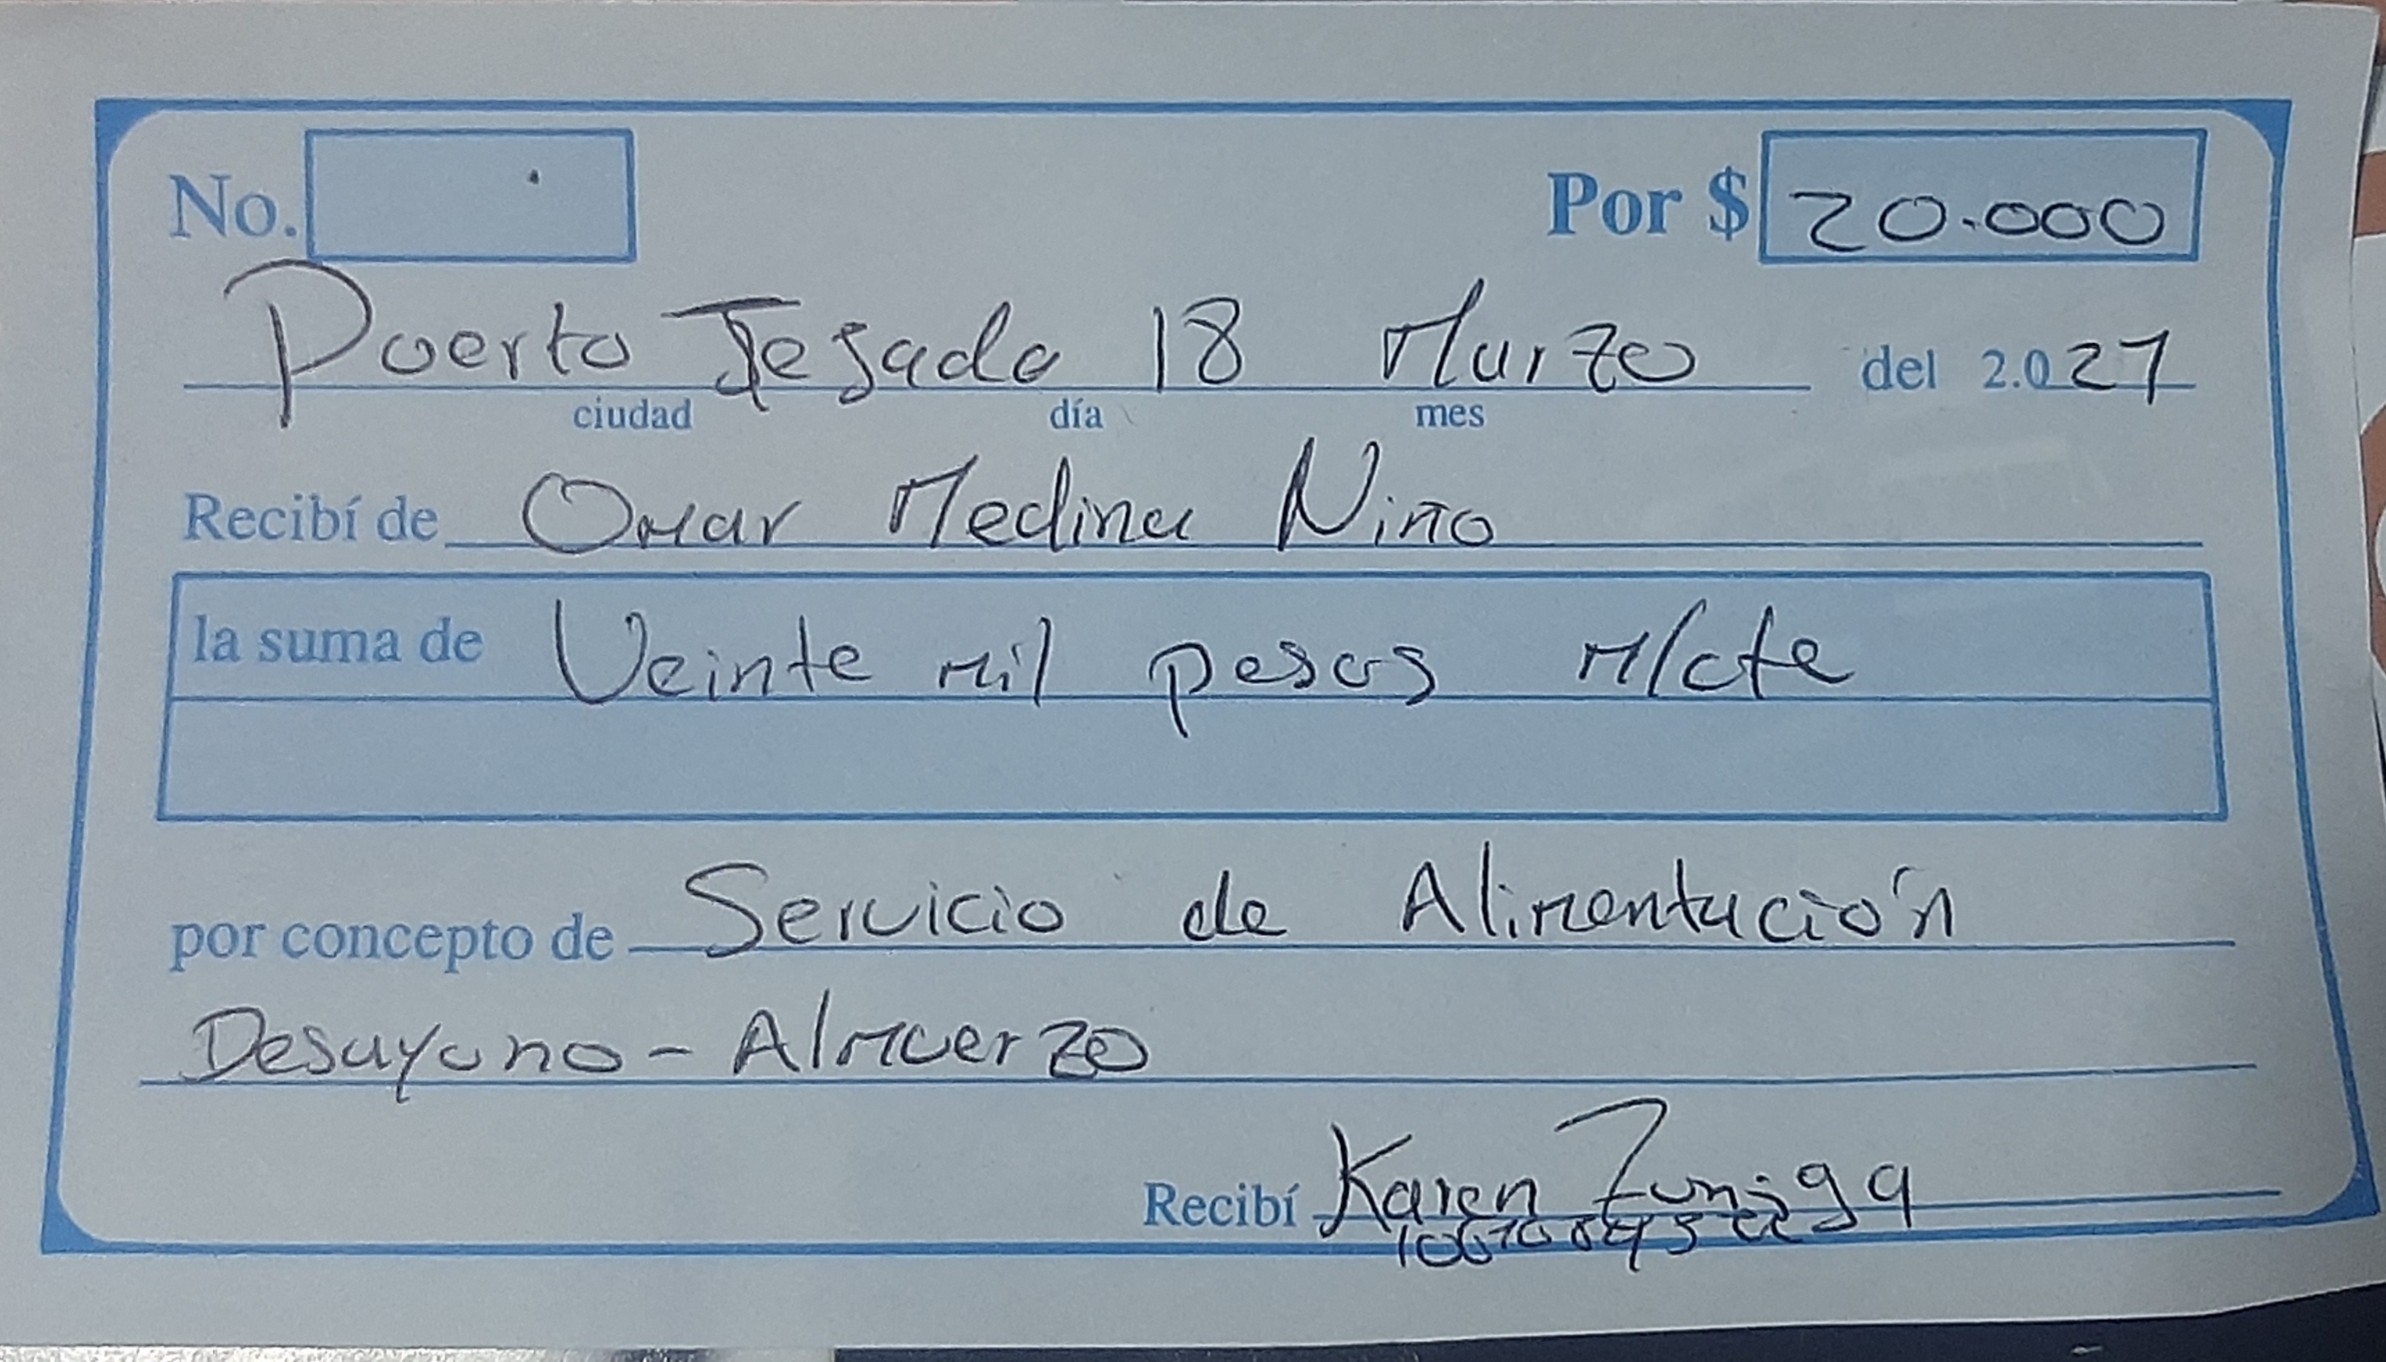 No. Por $ 20.000
Puerto Tejada 18 Marzo del 2.021
ciudad día mes
Recibí de Omar Medina Niño
la suma de Veinte mil pesos m/cte
por concepto de Servicio de Alimentación
Desayuno - Almuerzo
Recibí Karen Zuniga